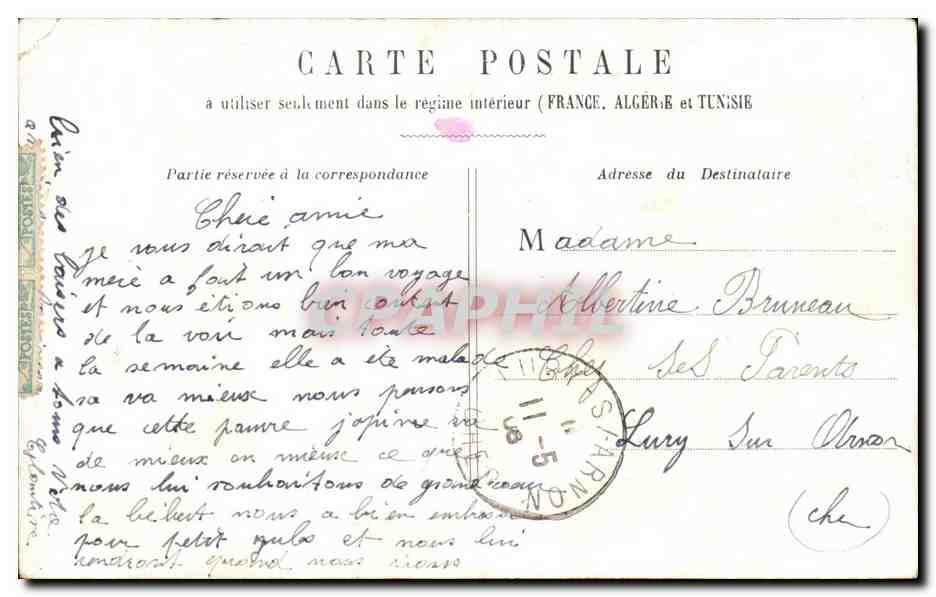 CARTE POSTALE
à utiliser seulement dans le régime intérieur (FRANCE, ALGÉRIE et TUNISIE
Partie réservée à la correspondance
Cherie amie
je vous dirait que ma
mere a fait un bon voyage
et nous étions bien content
de la voir mais toute
la semaine elle a été malade
sa va mieux nous pensons
que cette pauvre va
de mieux en mieux ce que
nous lui souhaitons de grand coeur
la bebert nous a bien
pour petit et nous lui
quand nous
bien, des baisers a tous
Adresse du Destinataire
Madame
Albertine Bruneau
Chez ses Parents
Lury sur Arnon
(cher
POSTES
POSTES
S/ARNON
11-5
08
CPAPHIL